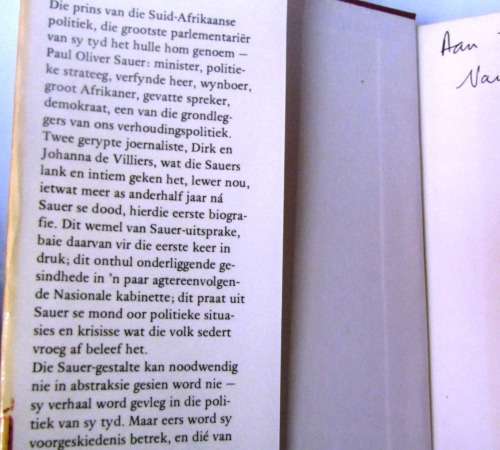 Die prins van die Suid-Afrikaanse
politiek, die grootste parlementariër
van sy tyd het hulle hom genoem —
Paul Oliver Sauer: minister, politie-
ke strateeg, verfynde heer, wynboer,
groot Afrikaner, gevatte spreker,
demokraat, een van die grondleg-
gers van ons verhoudingspolitiek.
Twee gerypte joernaliste, Dirk en
Johanna de Villiers, wat die Sauers
lank en intiem geken het, lewer nou,
ietwat meer as anderhalf jaar ná
Sauer se dood, hierdie eerste biogra-
fie. Dit wemel van Sauer-uitsprake,
baie daarvan vir die eerste keer in
druk; dit onthul onderliggende ge-
sindhede in 'n paar agtereenvolgen-
de Nasionale kabinette; dit praat uit
Sauer se mond oor politieke situa-
sies en krisisse wat die volk sedert
vroeg af beleef het.
Die Sauer-gestalte kan noodwendig
nie in abstraksie gesien word nie —
sy verhaal word gevleg in die poli-
tiek van sy tyd. Maar eers word sy
voorgeskiedenis betrek, en dié van
Aan